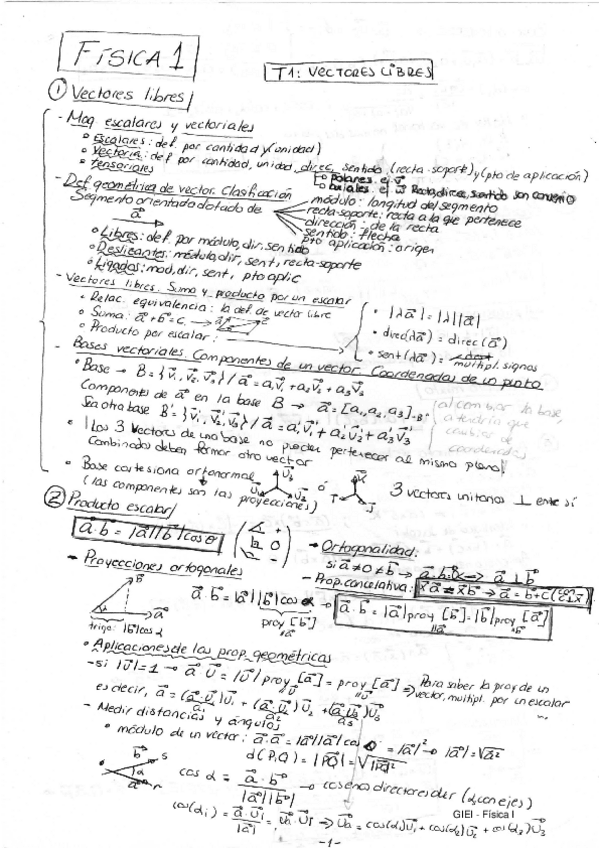 FÍSICA 1
T1: VECTORES LIBRES
① Vectores libres
- Mag escalares y vectoriales
• Escalares: def. por cantidad y (unidad)
• Vectorial: def por cantidad, unidad, direc, sentido (recta-soporte) y (pto de aplicación)
• tensoriales
polares ej
axiales ej ω Recta, direc, sentido son convenio
- Def geométrica de vector. Clasificación
Segmento orientado dotado de
a
módulo: longitud del segmento
recta soporte: recta a la que pertenece
dirección: de la recta
sentido: flecha
pto aplicación: origen
• Libres: def. por módulo, dir, sentido
• Deslizantes: módulo, dir, sent, recta-soporte
• Ligados: mod, dir, sent, pto aplic
- Vectores libres. Suma y producto por un escalar
• Relac. equivalencia: la def. de vector libre
• Suma: a⃗ + b⃗ = c⃗
• Producto por escalar:
• |λa⃗| = |λ||a⃗|
• direc(λa⃗) = direc(a⃗)
• sent(λa⃗) = multipl. signos
- Bases vectoriales. Componentes de un vector. Coordenadas de un punto
• Base → B = {v⃗₁, v⃗₂, v⃗₃} / a⃗ = a₁v⃗₁ + a₂v⃗₂ + a₃v⃗₃
Componentes de a⃗ en la base B → a⃗ = [a₁, a₂, a₃]B
Sea otra base B' = {v⃗₁', v⃗₂', v⃗₃'} / a⃗ = a₁'v⃗₁' + a₂'v⃗₂' + a₃'v⃗₃'
al cambiar la base,
tendría que
cambiar de
coordenadas
• ¡Los 3 vectores de una base no pueden pertenecer al mismo plano!
Combinados deben formar otro vector
• Base cartesiana ortonormal
(las componentes son las proyecciones)
ó
3 vectores unitarios ⊥ entre sí
② Producto escalar
a⃗ · b⃗ = |a⃗||b⃗| cos θ
- Ortogonalidad:
si a⃗ ≠ 0 ≠ b⃗ → a⃗ · b⃗ = 0 → a⃗ ⊥ b⃗
- Proyecciones ortogonales
- Prop. cancelativa:
b⃗
a⃗
trigo: |b⃗| cos α
a⃗ · b⃗ = |a⃗||b⃗| cos α
proy [b⃗]
a⃗ · b⃗ = |a⃗| proy [b⃗] = |b⃗| proy [a⃗]
• Aplicaciones de las prop. geométricas
- si |u⃗| = 1 → a⃗ · u⃗ = |u⃗| proy [a⃗] = proy [a⃗] ⇒ Para saber la proy de un
vector, multipl. por un escalar
es decir, a⃗ = (a⃗·u⃗₁)u⃗₁ + (a⃗·u⃗₂)u⃗₂ + (a⃗·u⃗₃)u⃗₃
a₁ a₂ a₃
- Medir distancias y ángulos
• módulo de un vector: a⃗·a⃗ = |a⃗||a⃗| cos 0 = |a⃗|² → |a⃗| = √a⃗²
d(P,Q) = |PQ| = √PQ²
b⃗ s
α
a⃗ r
cos α = a⃗ · b⃗ / |a⃗||b⃗| → cosenos directores der (α con ejes)
cos(αᵢ) = a⃗ · u⃗ᵢ / |a⃗| = u⃗a · u⃗ᵢ ⇒ u⃗a = cos(α₁)u⃗₁ + cos(α₂)u⃗₂ + cos(α₃)u⃗₃
GIEI - Física I
-1-